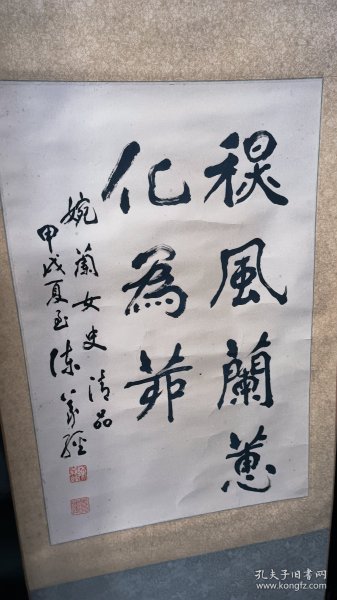 風蘭蕙
化為茆
婉蘭女史清品
甲戌夏至陈義經
孔夫子旧书网
www.kongfz.com